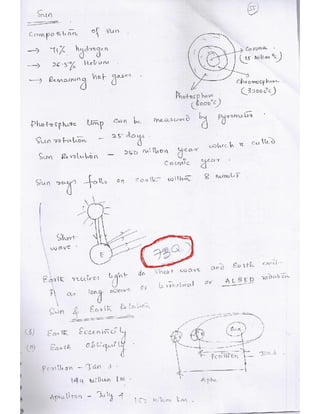 Sun
Composition of sun.
→ 71% hydrogen
→ 26.5% Helium
→ Remaining hot gases.
Corona
Chromosphere
(32000°c)
Photosphere
(6000°c)
Photosphere temp can be measured by pyrometer
Sun rotation - 25 days.
Sun Revolution - 250 million year which is called
Cosmic year.
Sun rays falls on earth within 8 minutes
Short
wave
E
Earth receives light in short wave and Earth
as long wave or terrestrial or ALBEDO radiation
Sun & Earth Relation
(i) Earth Eccentricity
(ii) Earth Obliquity
Sun
Perihelion
Jan 3
Aphe
Perihelion - Jan 3
Aphelion - July 4